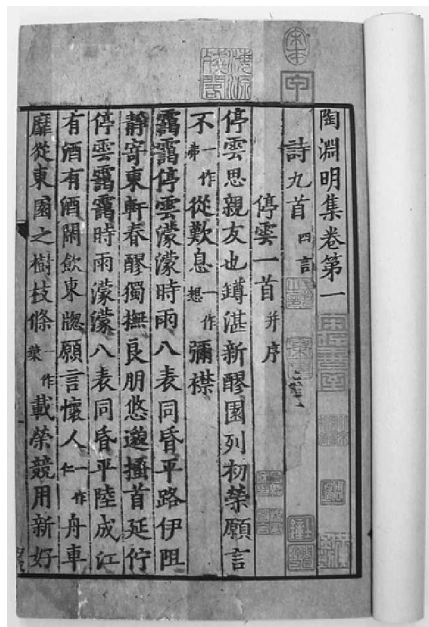 陶淵明集卷第一
詩九首 四言
停雲一首 并序
停雲思親友也罇湛新醪園列初榮願言
不一作弗從歎息一作想彌襟
靄靄停雲濛濛時雨八表同昏平路伊阻
靜寄東軒春醪獨撫良朋悠邈搔首延佇
停雲靄靄時雨濛濛八表同昏平陸成江
有酒有酒閑飲東牕願言懷人一作仁舟車
靡從東園之樹枝條一作葉載榮競用新好